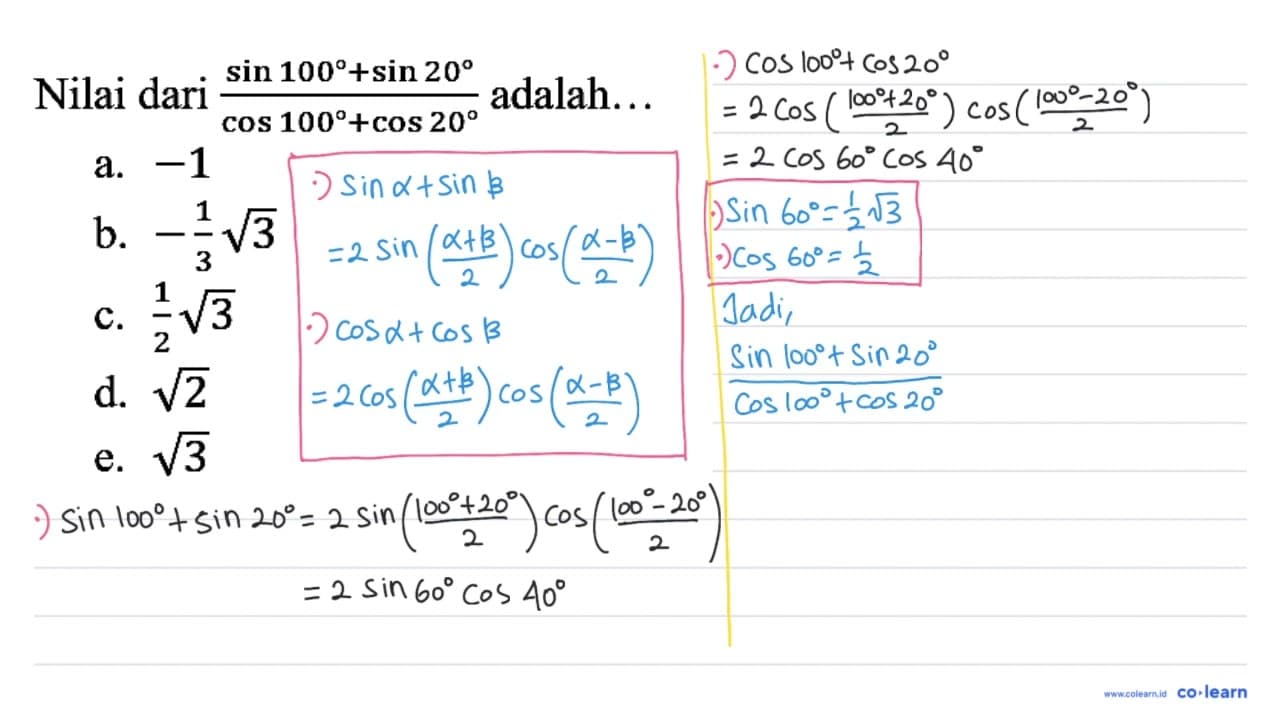 Nilai dari (sin 100°+sin 20°)/(cos 100°+cos 20°) adalah...
a. −1
b. −1/3 √3
c. 1/2 √3
d. √2
e. √3
·) Sin α + Sin β
= 2 Sin ((α+β)/2) cos ((α−β)/2)
·) cos α + cos β
= 2 cos ((α+β)/2) cos ((α−β)/2)
·) Sin 100° + Sin 20° = 2 Sin ((100°+20°)/2) cos ((100°−20°)/2)
= 2 Sin 60° cos 40°
·) Cos 100° + Cos 20°
= 2 Cos ((100°+20°)/2) cos ((100°−20°)/2)
= 2 cos 60° cos 40°
·) Sin 60° = 1/2 √3
·) Cos 60° = 1/2
Jadi,
(Sin 100° + Sin 20°)/(Cos 100° + cos 20°)
www.colearn.id co·learn